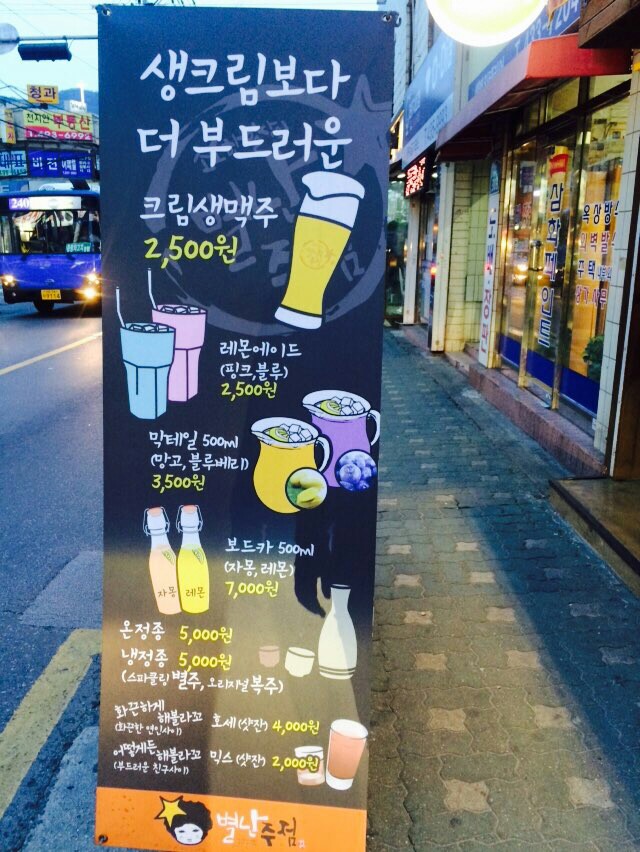 생크림보다
더 부드러운
크림생맥주
2,500원
레몬에이드
(핑크,블루)
2,500원
막테일 500ml
(망고, 블루베리)
3,500원
보드카 500ml
(자몽, 레몬)
7,000원
자몽 레몬
온정종 5,000원
냉정종 5,000원
(스파클링 별주, 오리지널 복주)
화끈하게 해볼라꼬
(화끈한 연인사이)
호세 (샷잔) 4,000원
어떻게든 해볼라꼬
(부드러운 친구사이)
믹스 (샷잔) 2,000원
별난주점
청과
부동산
240
삼화페인트
옥상방수